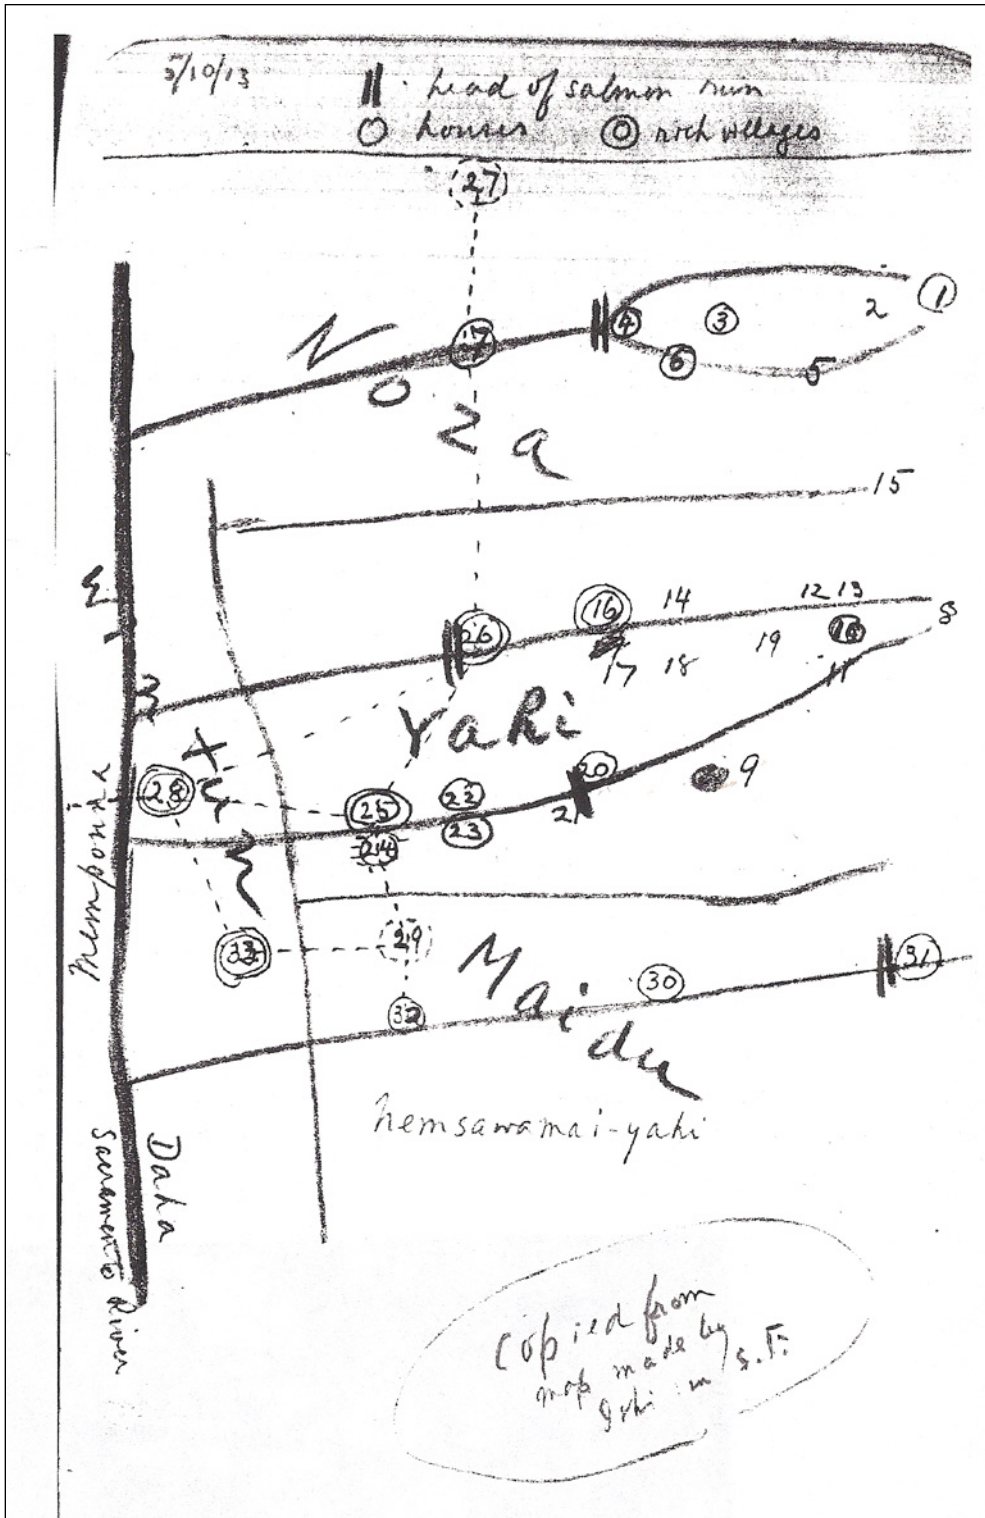 5/10/13
head of salmon run
houses
villages
27
1
2
3
4
5
6
7
Noza
15
26
16
14
12 13
8
10
17 18
19
11
Yahi
28
25
22
20
9
21
23
24
memponna
33
29
Maidu
30
31
32
hemsawamai-yahi
Daha
Sacramento River
Copied from
map made by
Ishi in S.F.